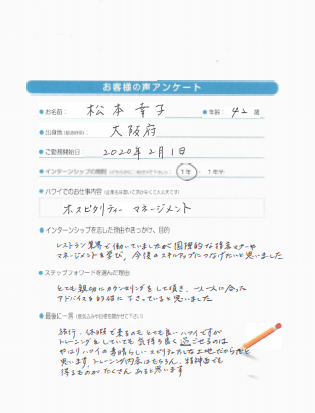 お客様の声アンケート
お名前： 松本幸子 年齢： 42 歳
出身地 大阪府
ご勤務開始日： 2020年2月1日
インターンシップの期間 1年 ・ 1年半
ハワイでのお仕事内容
ホスピタリティー マネージメント
インターンシップを志した理由やきっかけ、目的
レストラン業界で働いていましたが国際的な接客マナーや
マネージメントを学び、今後のスキルアップにつなげたいと思いました
ステップフォワードを選んだ理由
とても親切にカウンセリングをして頂き、一人一人に合った
アドバイスを的確に下さっていると思いました
最後に一言
旅行、休暇で来るのもとても良いハワイですが
トレーニングをしていても気持ち良く過ごせるのは
やはりハワイの素晴らしいスピリチュアルな土地だからだと
思います。トレーニング内容はもちろん、精神面でも
得るものがたくさんあると思います